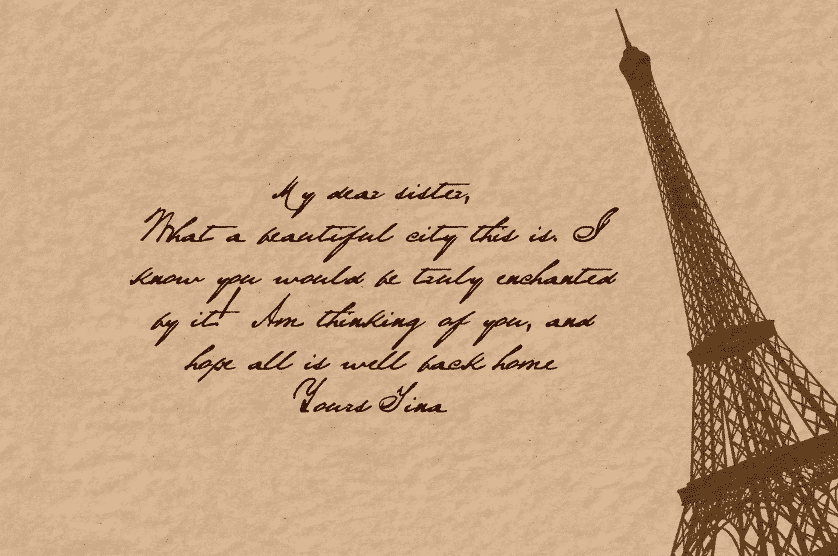 My dear sister,
What a beautiful city this is. I
know you would be truly enchanted
by it! Am thinking of you, and
hope all is well back home
Yours Tina